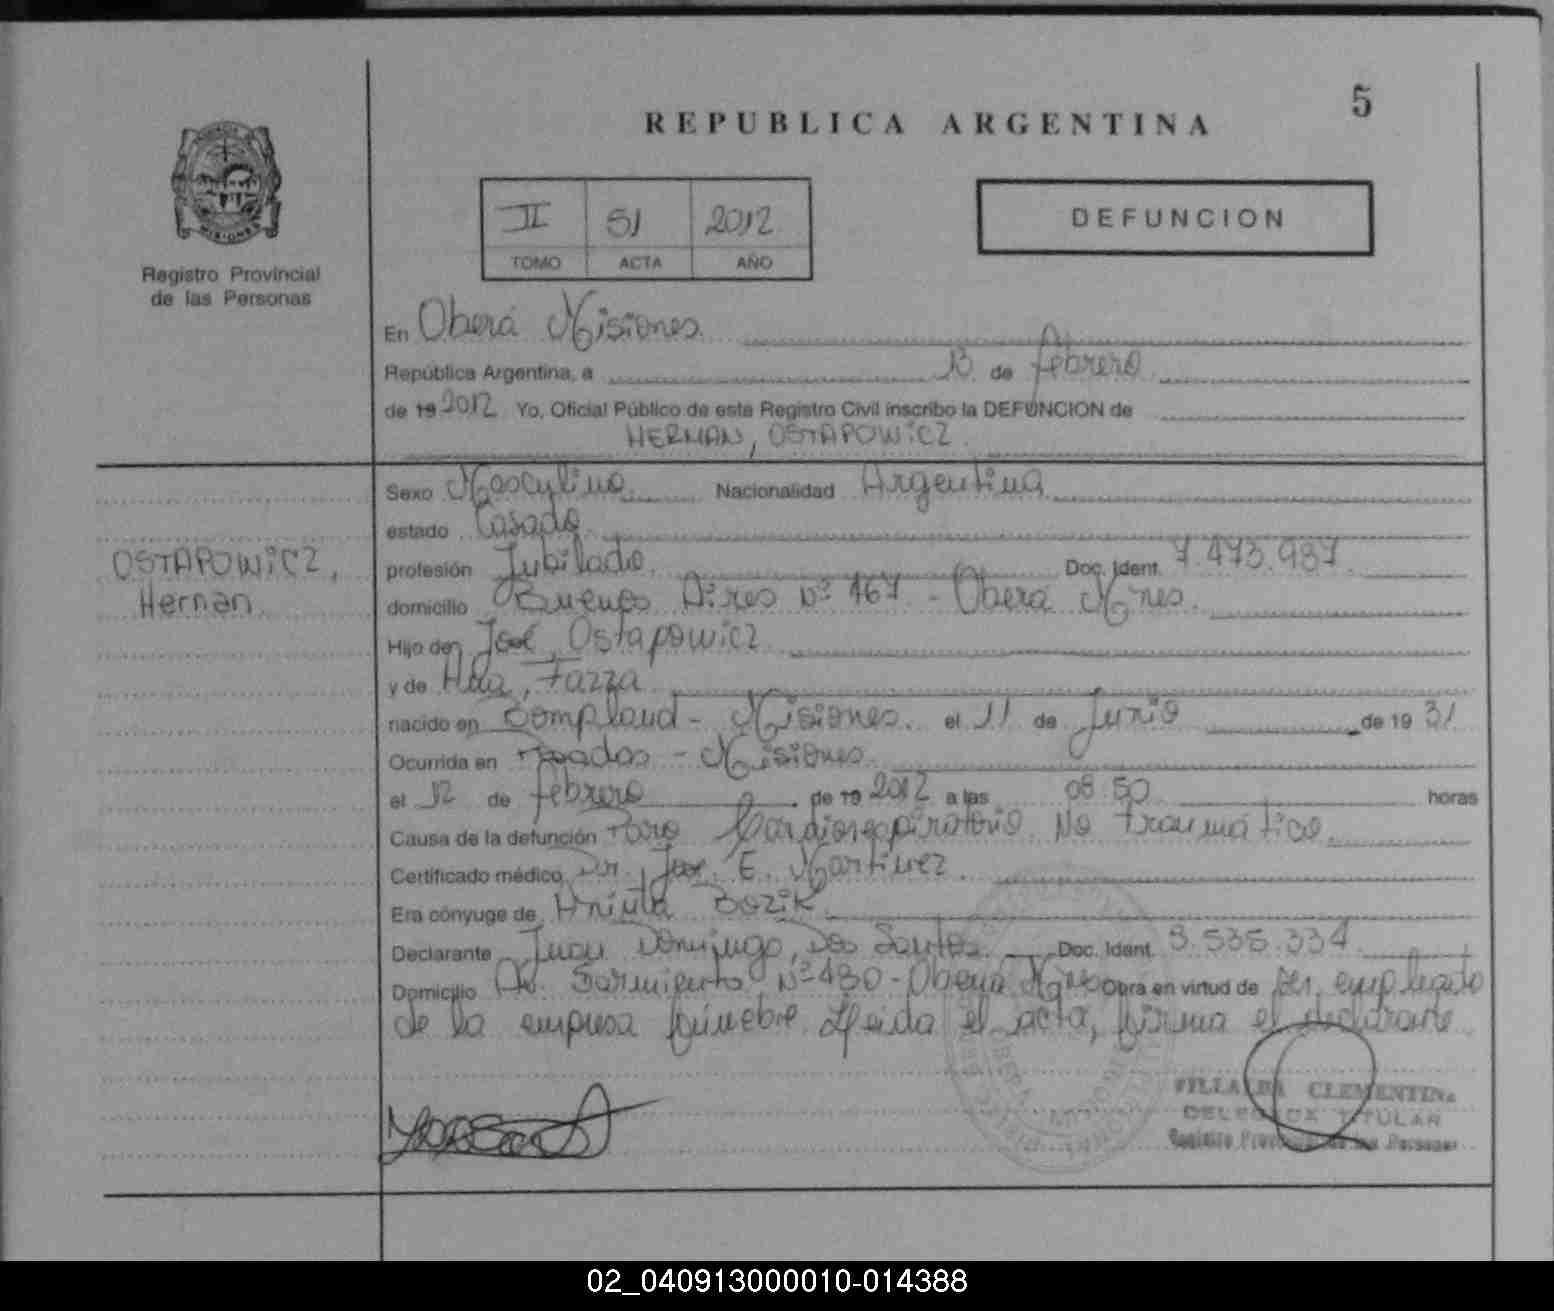 5
REPUBLICA ARGENTINA
II 51 2012
TOMO ACTA AÑO
DEFUNCION
MISIONES
Registro Provincial
de las Personas
En Oberá Misiones
República Argentina, a 13 de febrero
de 19 2012 Yo, Oficial Público de este Registro Civil inscribo la DEFUNCION de
HERNAN, OSTAPOWICZ
OSTAPOWICZ,
Hernan
Sexo Masculino Nacionalidad Argentina
estado Casado
profesión Jubilado Doc. Ident. 7.473.937
domicilio Buenos Aires Nº 167 - Oberá Mnes
Hijo de José, Ostapowicz
y de Fazza
nacido en Bompland - Misiones el 11 de Junio de 19 31
Ocurrida en Posadas - Misiones
el 12 de febrero de 19 2012 a las 08:50 horas
Causa de la defunción Paro Cardiorespiratorio No traumático
Certificado médico Dr. José E. Martinez
Era cónyuge de Aniuta Bozik
Declarante Juan Domingo, Dos Santos Doc. Ident. 8.535.334
Domicilio Av. Sarmiento Nº 480 - Oberá Mnes Obra en virtud de ser empleado
de la empresa fúnebre. Leida el acta, firma el declarante
VILLALBA CLEMENTINA
DELEGADA TITULAR
Registro Provincial de las Personas
02_040913000010-014388